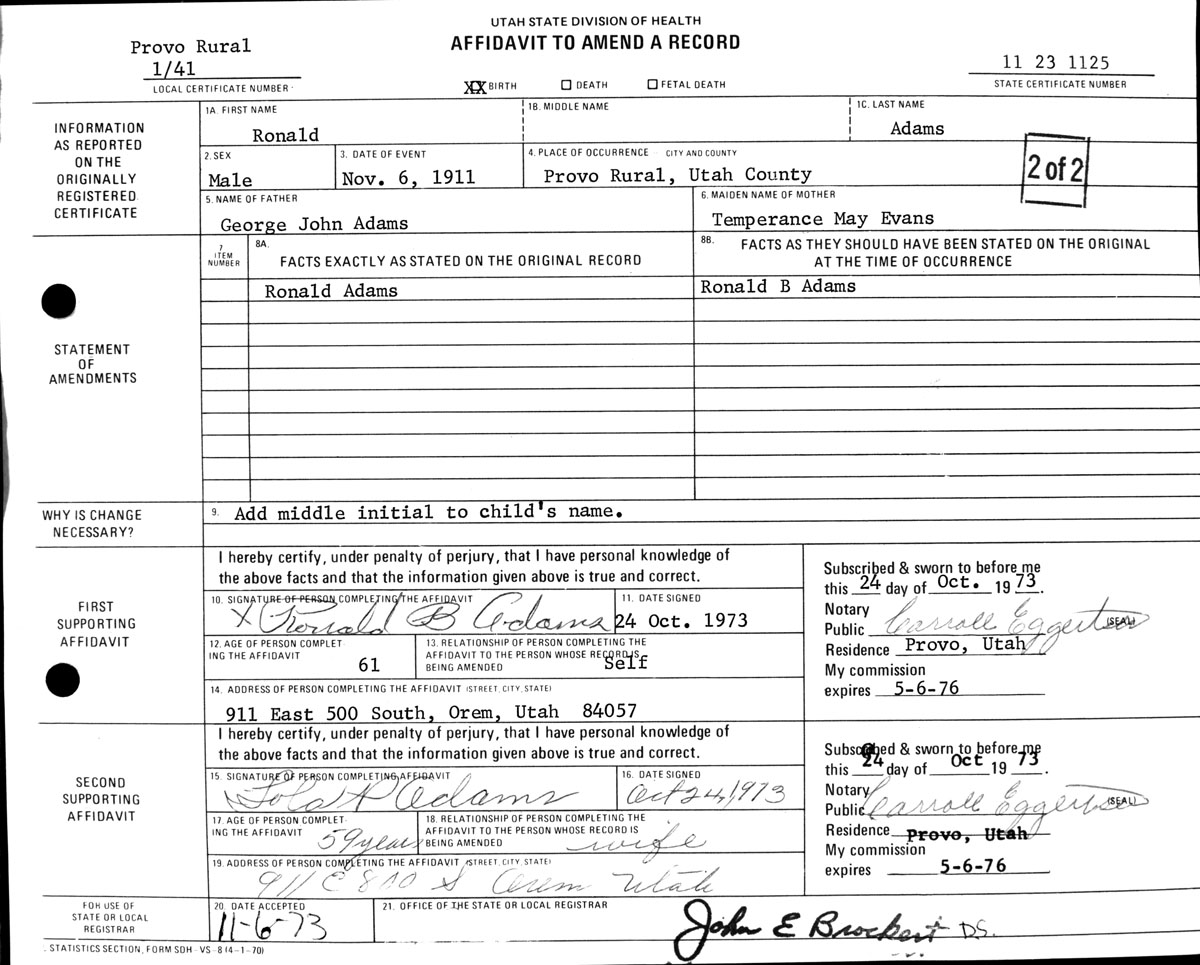 UTAH STATE DIVISION OF HEALTH
AFFIDAVIT TO AMEND A RECORD
Provo Rural
1/41
LOCAL CERTIFICATE NUMBER
XX BIRTH ☐ DEATH ☐ FETAL DEATH
11 23 1125
STATE CERTIFICATE NUMBER
INFORMATION
AS REPORTED
ON THE
ORIGINALLY
REGISTERED
CERTIFICATE
1A. FIRST NAME
Ronald
1B. MIDDLE NAME
1C. LAST NAME
Adams
2. SEX
Male
3. DATE OF EVENT
Nov. 6, 1911
4. PLACE OF OCCURRENCE CITY AND COUNTY
Provo Rural, Utah County
2 of 2
5. NAME OF FATHER
George John Adams
6. MAIDEN NAME OF MOTHER
Temperance May Evans
STATEMENT
OF
AMENDMENTS
7
ITEM
NUMBER
8A.
FACTS EXACTLY AS STATED ON THE ORIGINAL RECORD
8B. FACTS AS THEY SHOULD HAVE BEEN STATED ON THE ORIGINAL
AT THE TIME OF OCCURRENCE
Ronald Adams
Ronald B Adams
WHY IS CHANGE
NECESSARY?
9. Add middle initial to child's name.
FIRST
SUPPORTING
AFFIDAVIT
I hereby certify, under penalty of perjury, that I have personal knowledge of
the above facts and that the information given above is true and correct.
10. SIGNATURE OF PERSON COMPLETING THE AFFIDAVIT
X Ronald B Adams
11. DATE SIGNED
24 Oct. 1973
12. AGE OF PERSON COMPLET
ING THE AFFIDAVIT
61
13. RELATIONSHIP OF PERSON COMPLETING THE
AFFIDAVIT TO THE PERSON WHOSE RECORD IS
BEING AMENDED
Self
14. ADDRESS OF PERSON COMPLETING THE AFFIDAVIT (STREET, CITY, STATE)
911 East 500 South, Orem, Utah 84057
Subscribed & sworn to before me
this 24 day of Oct. 19 73.
Notary
Public Carroll Eggertsen (SEAL)
Residence Provo, Utah
My commission
expires 5-6-76
SECOND
SUPPORTING
AFFIDAVIT
I hereby certify, under penalty of perjury, that I have personal knowledge of
the above facts and that the information given above is true and correct.
15. SIGNATURE OF PERSON COMPLETING AFFIDAVIT
Adams
16. DATE SIGNED
Oct 24, 1973
17. AGE OF PERSON COMPLET
ING THE AFFIDAVIT
59 years
18. RELATIONSHIP OF PERSON COMPLETING THE
AFFIDAVIT TO THE PERSON WHOSE RECORD IS
BEING AMENDED
wife
19. ADDRESS OF PERSON COMPLETING THE AFFIDAVIT (STREET, CITY, STATE)
911 E 800 S Orem Utah
Subscribed & sworn to before me
this 24 day of Oct 19 73.
Notary
Public Carroll Eggertsen (SEAL)
Residence Provo, Utah
My commission
expires 5-6-76
FOR USE OF
STATE OR LOCAL
REGISTRAR
20. DATE ACCEPTED
11-6-73
21. OFFICE OF THE STATE OR LOCAL REGISTRAR
John E Brockert DS.
STATISTICS SECTION, FORM SDH-VS-8 (4-1-70)